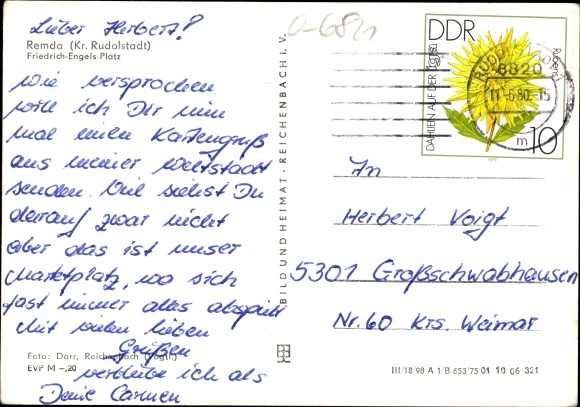 Lieber Herbert!
0-6821
Remda (Kr. Rudolstadt)
Friedrich-Engels-Platz
Wie versprochen
will ich Dir nun
mal einen Kartengruß
aus meiner Weltstadt
senden. Viel siehst Du
darauf zwar nicht
aber das ist unser
Marktplatz, wo sich
fast immer alles abspielt
Mit vielen lieben
Grüßen
verbleibe ich als
Deine Carmen
Foto: Darr, Reichenbach (Vogtl.)
EVP M –,20
BILD UND HEIMAT · REICHENBACH i. V.
DDR
DAHLIEN AUF DER iga 80
Rubens
10
1979
6820
11.-6.80.-15
m
An
Herbert Voigt
5301 Großschwabhausen
Nr. 60 Krs. Weimar
III/18/98 A 1/B 653/75 01 10 06 321